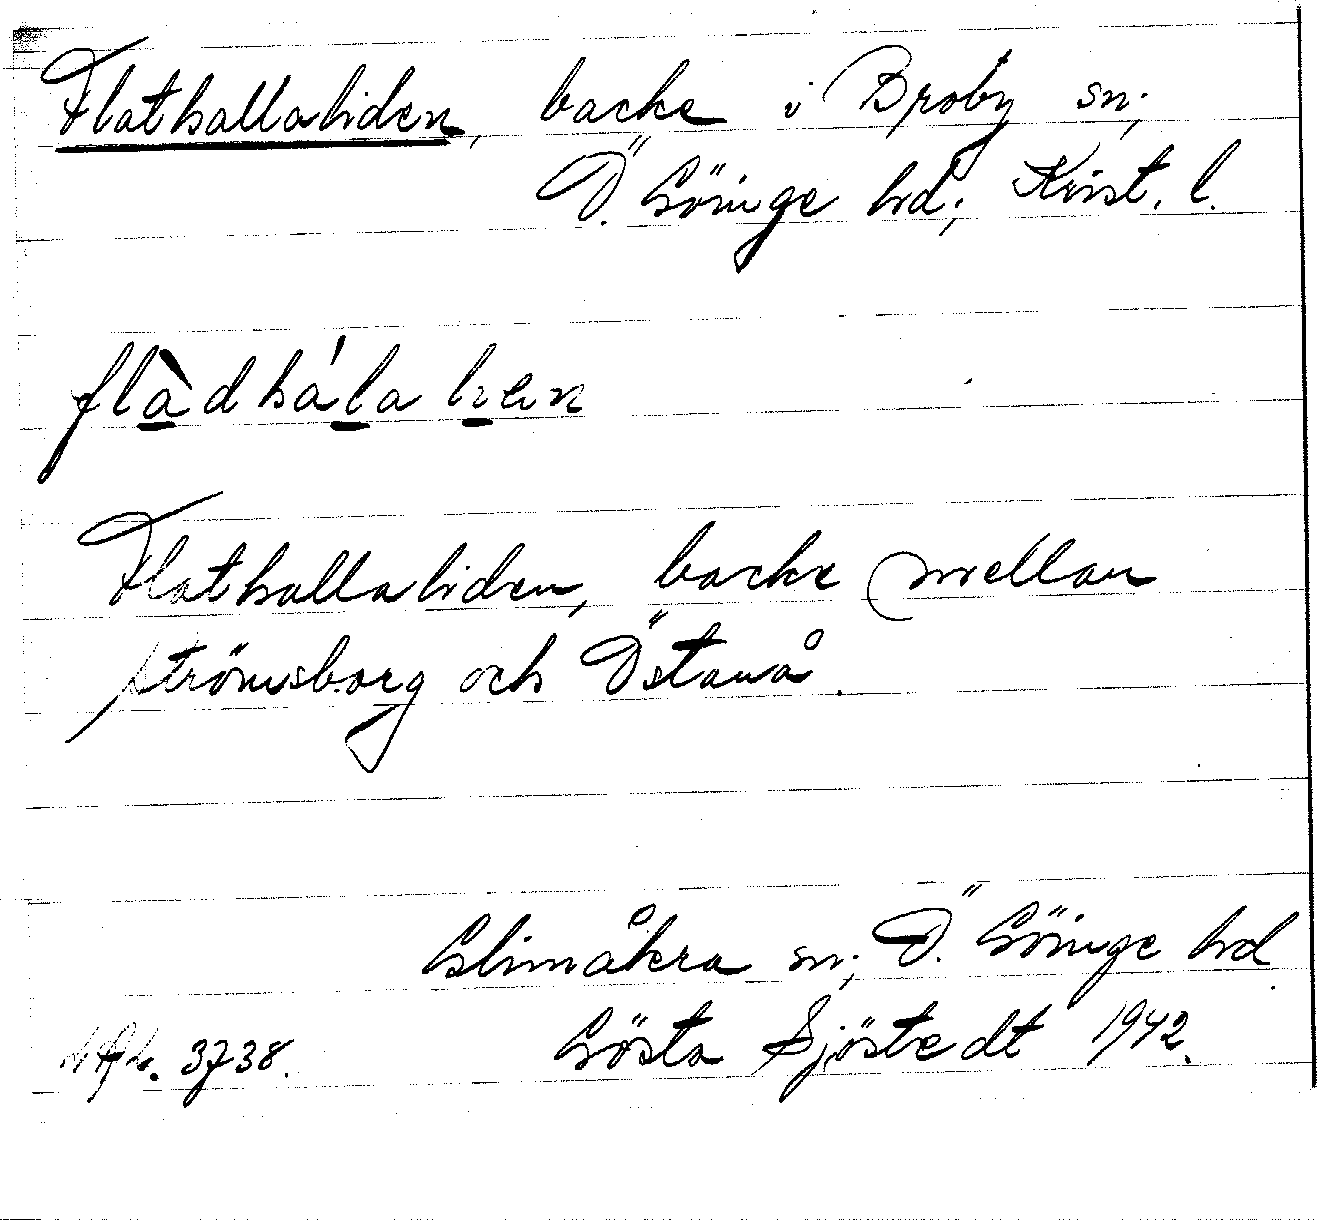 Flathallaliden, backe i Broby sn;
Ö. Göinge hd; Krist. l.
flàdhála lien
Flathallaliden, backe mellan
Strömsborg och Östanå.
Glimåkra sn; Ö. Göinge hd.
Gösta Sjöstedt 1942.
3738.